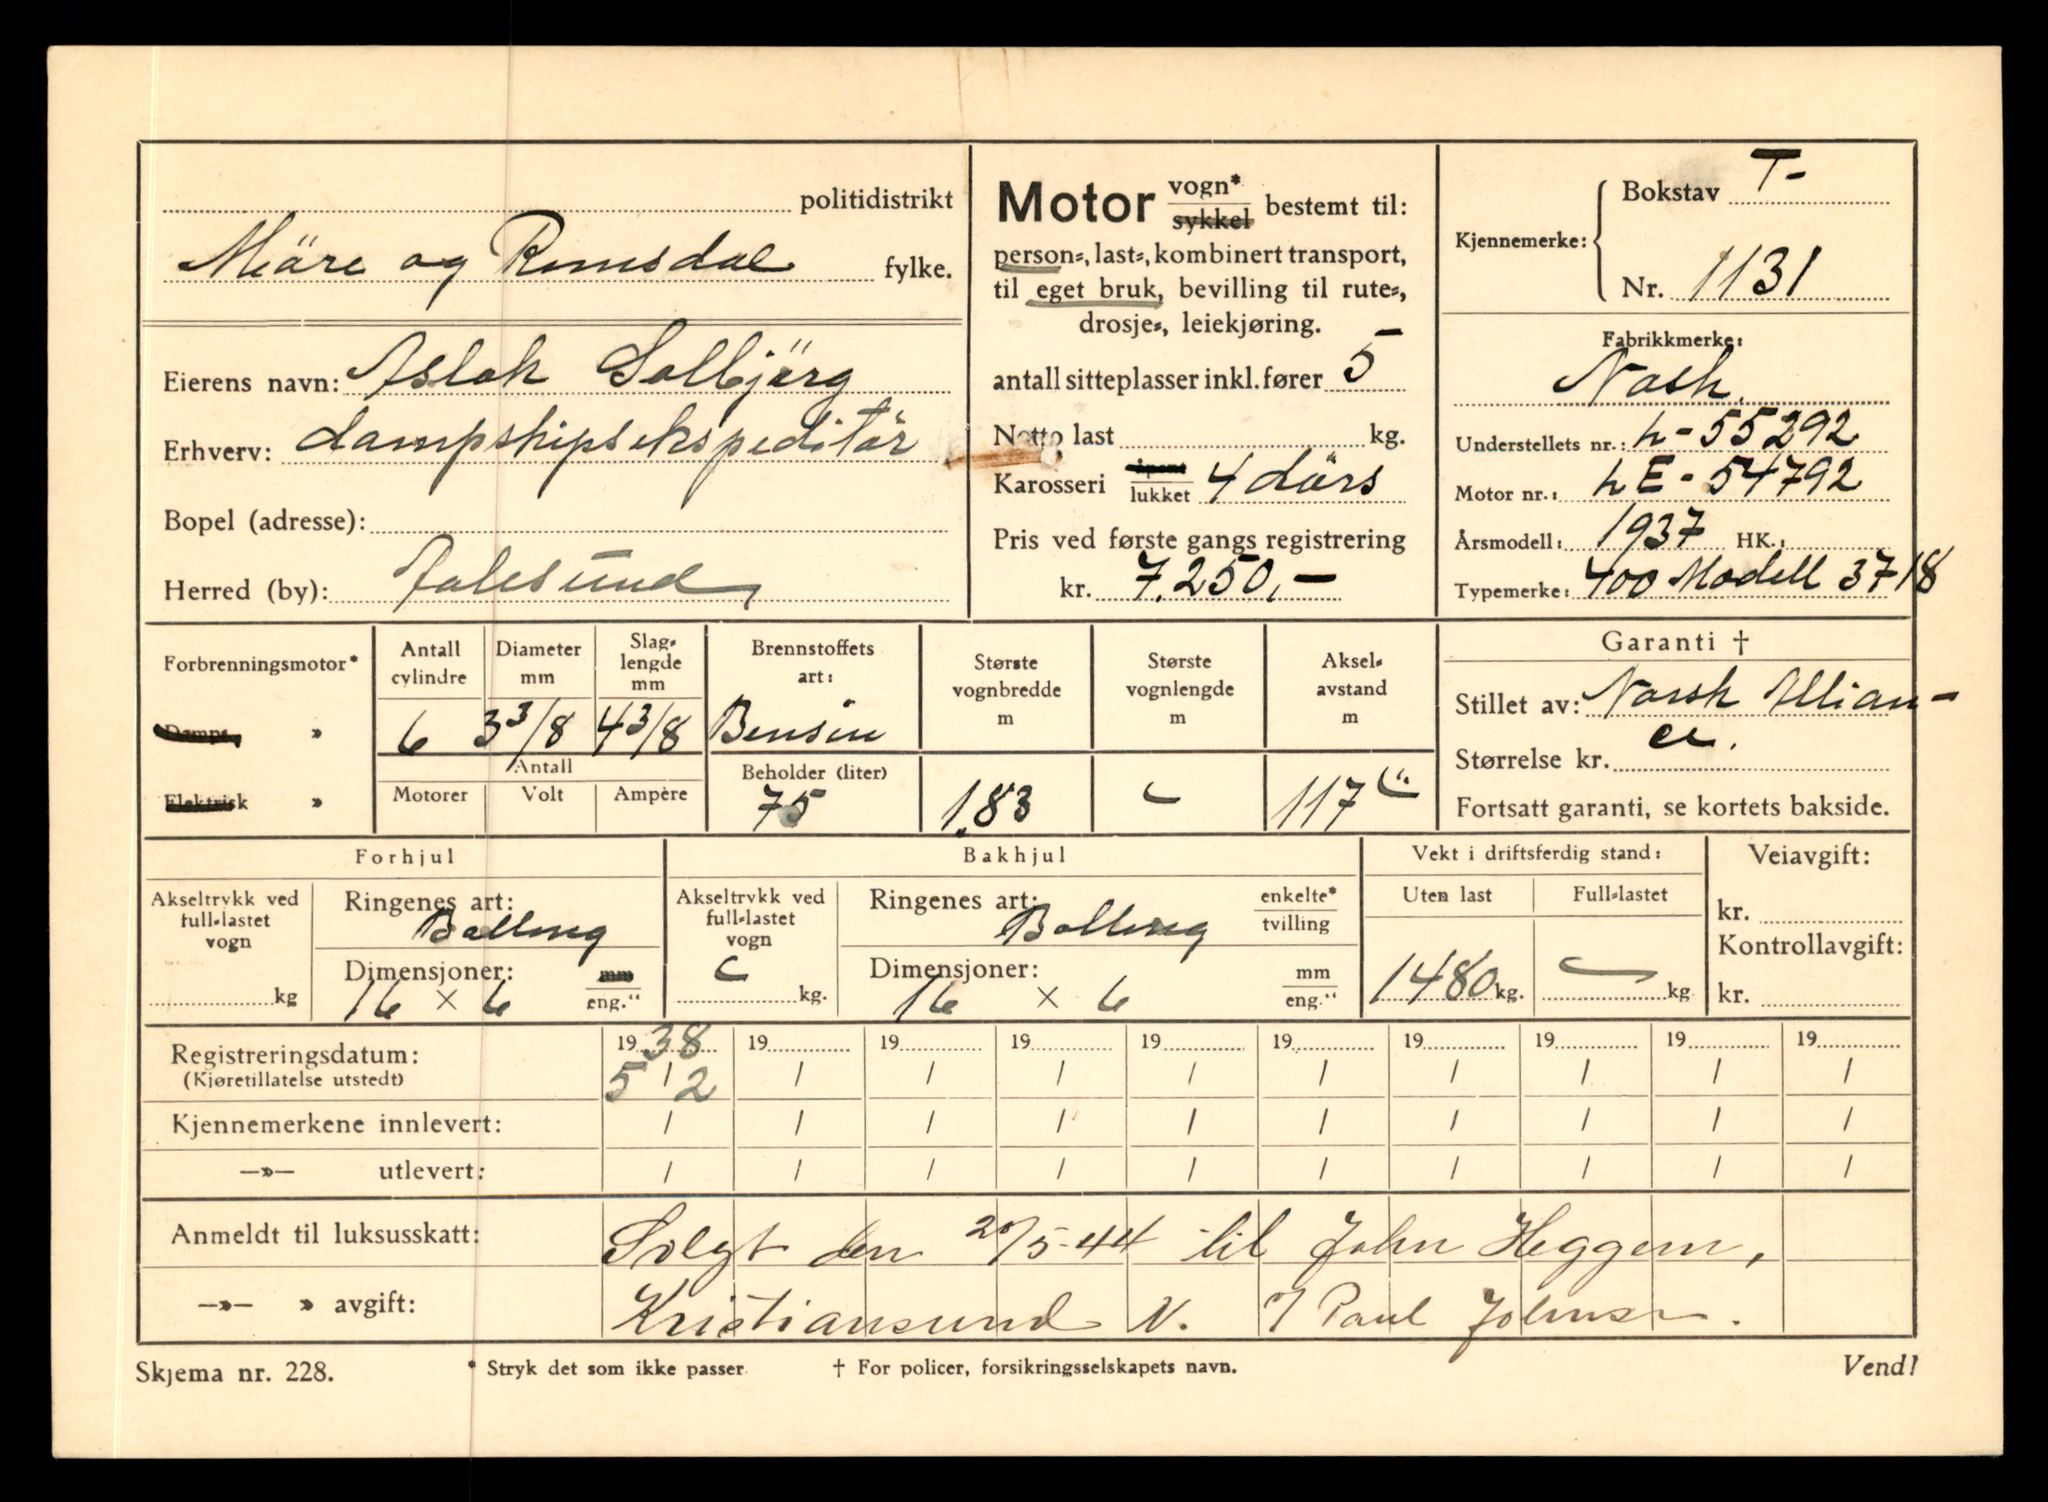 politidistrikt
Möre og Romsdal fylke.
Eierens navn: Aslak Solbjörg
Erhverv: dampskipsekspeditör
Bopel (adresse):
Herred (by): Aalesund
Motor vogn* sykkel bestemt til:
person-, last-, kombinert transport,
til eget bruk, bevilling til rute-,
drosje-, leiekjøring.
antall sitteplasser inkl. fører 5
Netto last kg.
Karosseri lukket 4 dörs
Pris ved første gangs registrering
kr. 7.250,-
Kjennemerke: Bokstav T-
Nr. 1131
Fabrikkmerke:
Nash.
Understellets nr.: L-55292
Motor nr.: LE-54792
Årsmodell: 1937 HK.:
Typemerke: 400 Modell 3718
Forbrenningsmotor*
Damp- »
Elektrisk »
Antall cylindre
6
Diameter mm
3 3/8
Slaglengde mm
4 3/8
Antall
Motorer Volt Ampère
Brennstoffets art:
Bensin
Beholder (liter)
75
Største vognbredde m
1,83
Største vognlengde m
Akselavstand m
117"
Garanti †
Stillet av: Norsk Allian-
ce.
Størrelse kr.
Fortsatt garanti, se kortets bakside.
Forhjul
Akseltrykk ved full-lastet vogn
kg
Ringenes art:
Ballong
Dimensjoner: mm eng."
16 × 6
Bakhjul
Akseltrykk ved full-lastet vogn
kg.
Ringenes art: enkelte* tvilling
Ballong
Dimensjoner: mm eng."
16 × 6
Vekt i driftsferdig stand:
Uten last Full-lastet
1480 kg. kg.
Veiavgift:
kr.
Kontrollavgift:
kr.
Registreringsdatum: 1938 19 19 19 19 19 19 19 19 19
(Kjøretillatelse utstedt) 5/2 / / / / / / / / /
Kjennemerkene innlevert: / / / / / / / / / /
—»— utlevert: / / / / / / / / / /
Anmeldt til luksusskatt: Solgt den 20/5-44 til John Heggem,
—»— » avgift: Kristiansund N. Paul Johnsen.
Skjema nr. 228. * Stryk det som ikke passer † For policer, forsikringsselskapets navn. Vend!